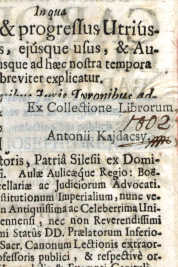 In qua
& progressus Utrius-
s, ejúsque usus, & Au-
usque ad hæc nostra tempora
breviter explicatur,
Ex Collectione Librorum
1802
Antonii Kajdacsy
toris, Patriâ Silesii ex Domi-
i. Aulæ Aulicæque Regio: Boë-
cellariæ ac Judiciorum Advocati.
stitutionum Imperialium, nunc ve-
n Antiquissima ac Celeberrima Uni-
ennensi, nec non Reverendissimi
mi Statûs DD. Prælatorum Inferio-
Sacr. Canonum Lectionis extraor-
ofessoris publici, & respectivè or-